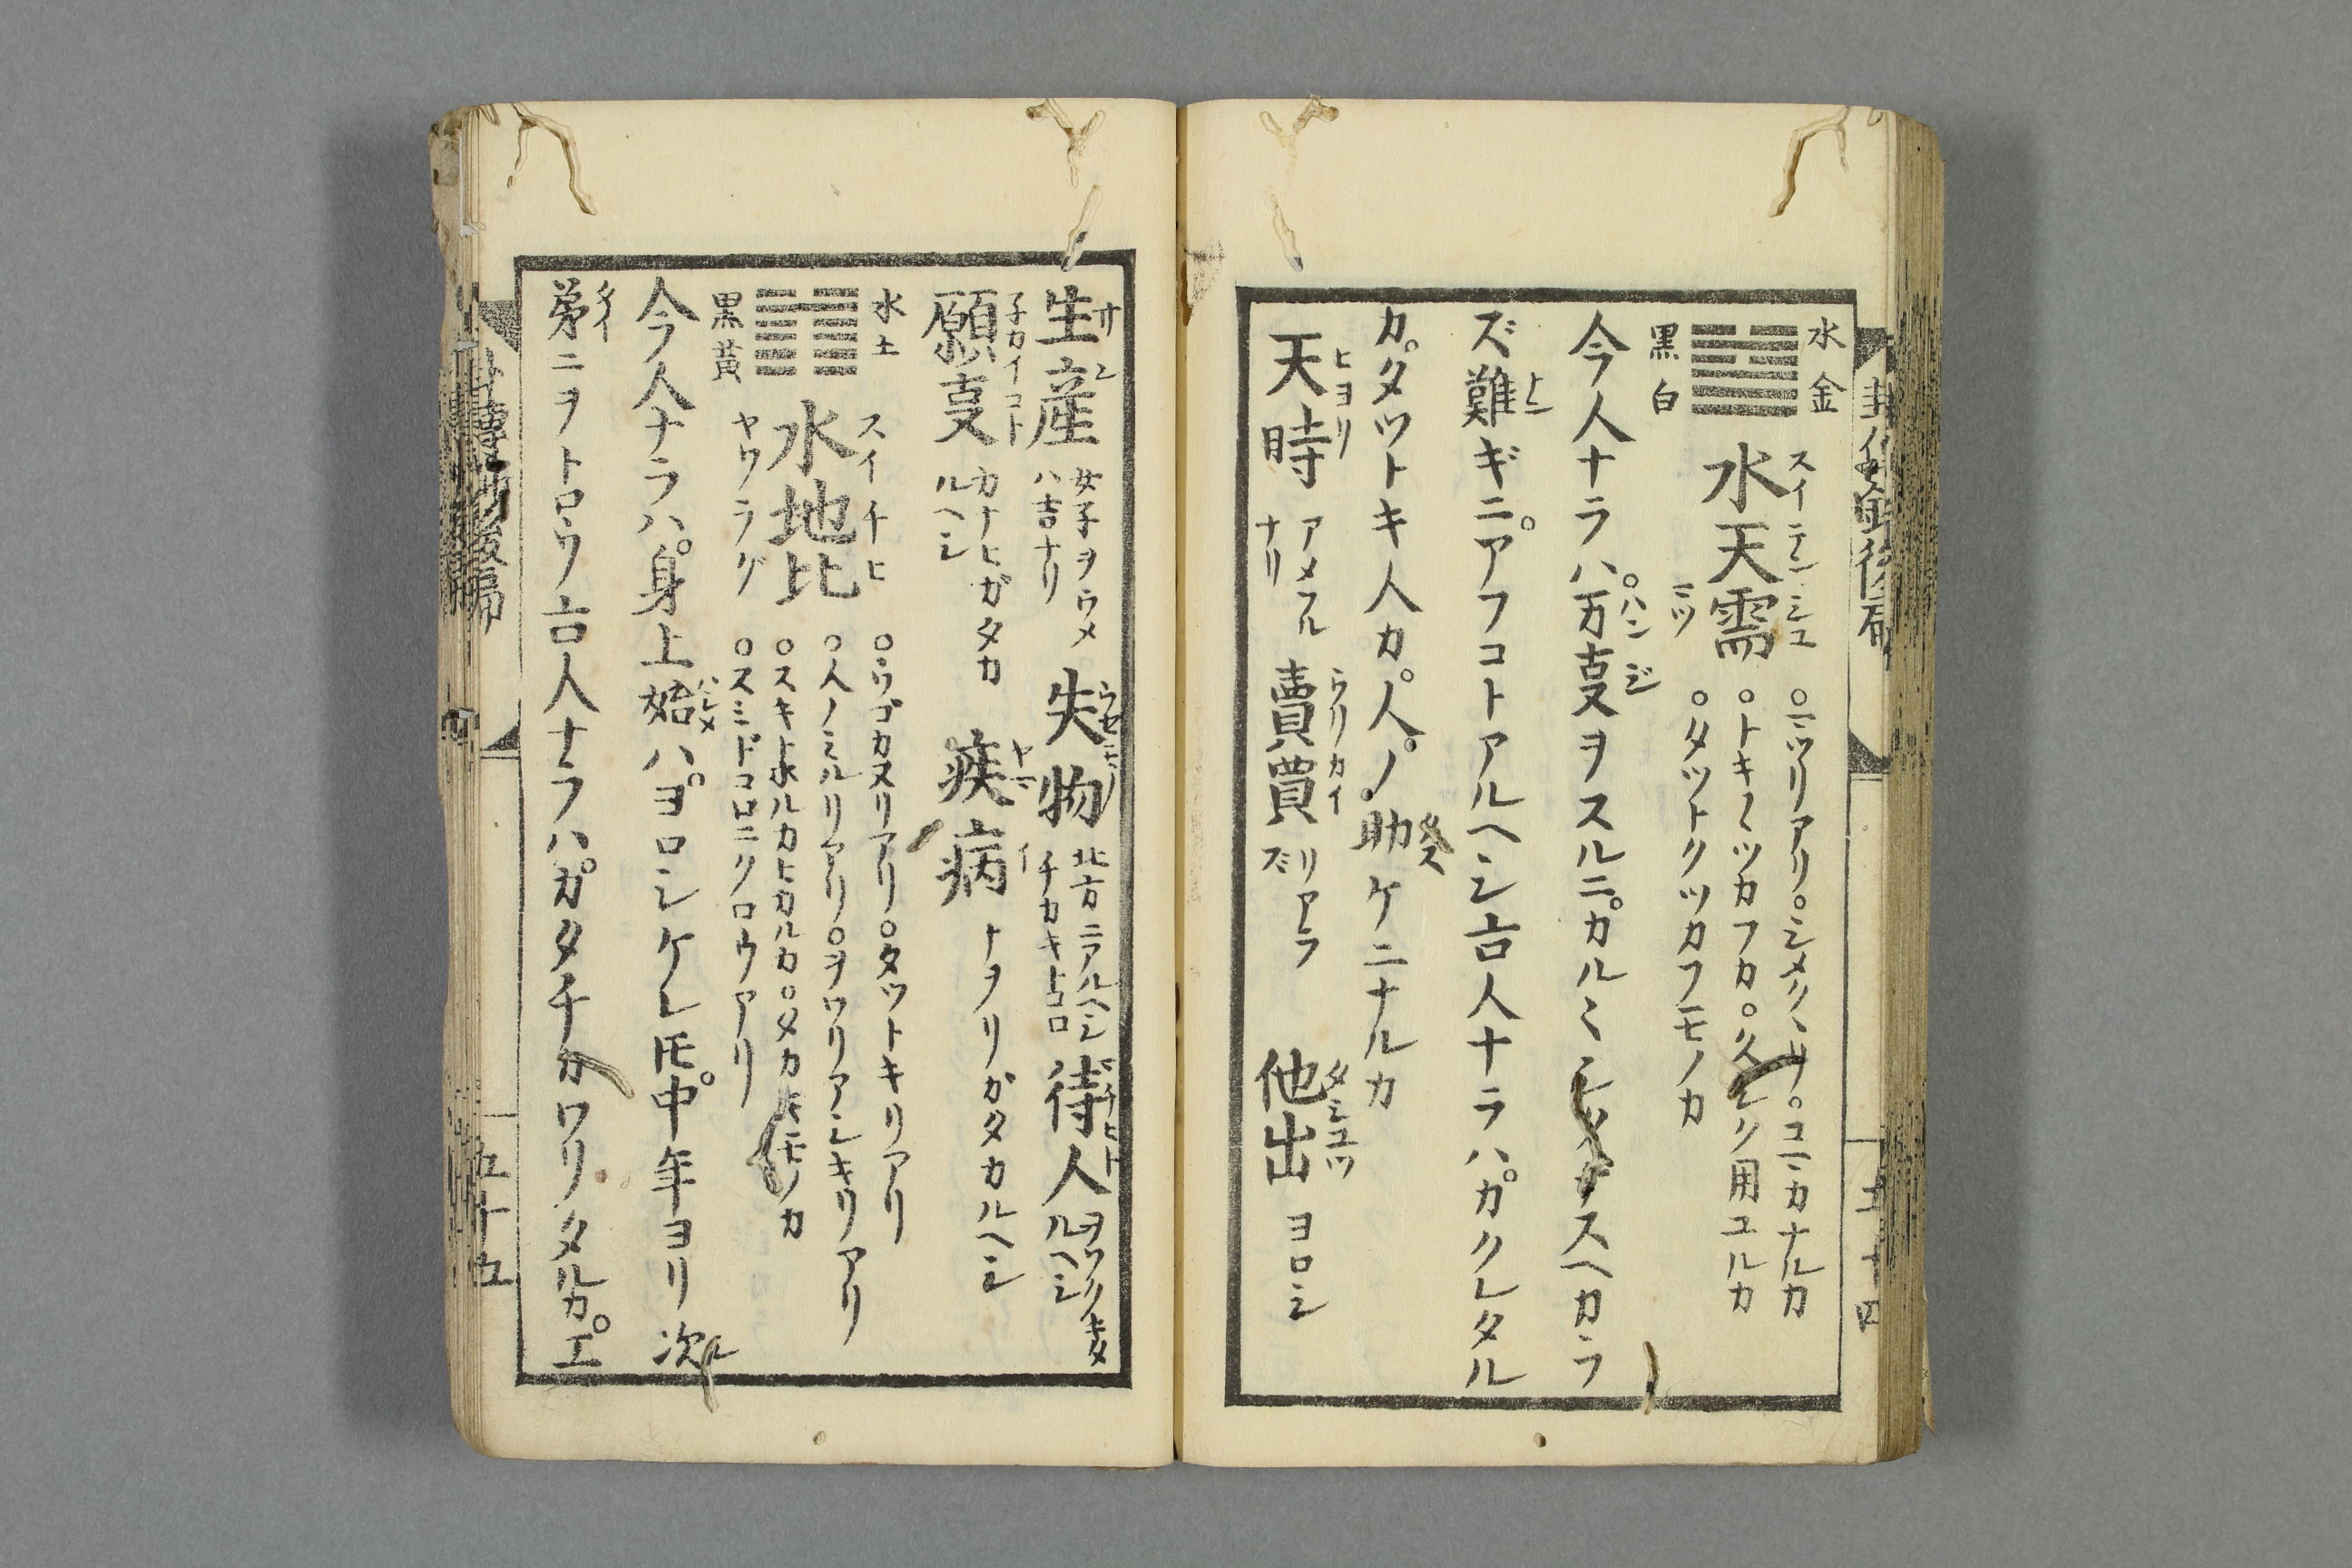 水金
黒白
水天需
スイテンシユ
ミツ
○ミツリアリ○シメクヽリ○コマカナルカ
○トキ〳〵ツカフカ○久シク用ユルカ
○タツトクツカフモノカ
今人ナラハ。万叓ヲスルニ。カルミシク。ナスヘカラ
ハンジ
ズ難ギニ。アフコトアルヘシ占人ナラハ。カクレタル
カ。タツトキ人カ。人ノ助ケニナルカ
天時
ヒヨリ
アメフル
ナリ
賣買
ウリカイ
リアラ
ズ
他出
タシユツ
ヨロシ
五十四
生産
サン
女子ヲウメ
ハ吉ナリ
失物
ウセモノ
北方ニアルヘシ
チカキトコロ
待人
マチヒト
ヲソクキタ
ルヘシ
願叓
子カイコト
カナヒガタカ
ルヘシ
疾病
ヤマイ
ナヲリガタカルヘシ
水土
黒黄
水地比
スイチヒ
ヤワラグ
○ウゴカヌリアリ○タツトキリアリ
○人ノミルリアリ○ヲワリアシキリアリ
○スキトホルカヒカルカ○タカキモノカ
○スミドコロニクロウアリ
今人ナラハ。身上始ハ。ヨロシケレ𪜈。中年ヨリ次
ハシメ
弟ニヲトロウ占人ナラハ。カタチカワリタルカ。エ
五十五